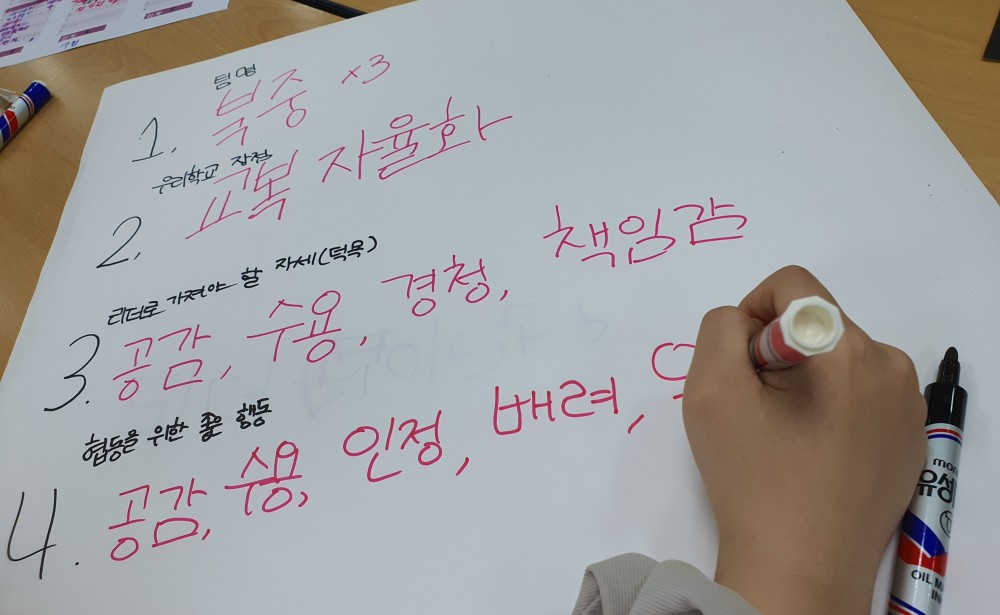 팀명
1. 북중 x3
우리학교 장점
2. 교복 자율화
리더로 가져야 할 자세(덕목)
3. 공감, 수용, 경청, 책임감
협동을 위한 좋은 행동
4. 공감, 수용, 인정, 배려,
유성
OIL MA